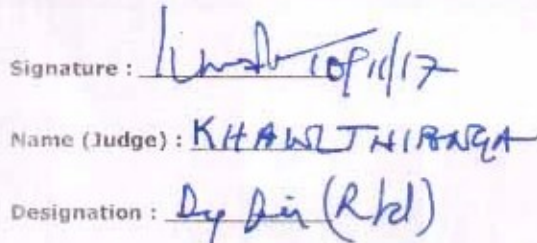 Signature : 10/11/17
Name (Judge) : KHAWLTHIANGA
Designation : Dy Dir (Rtd)